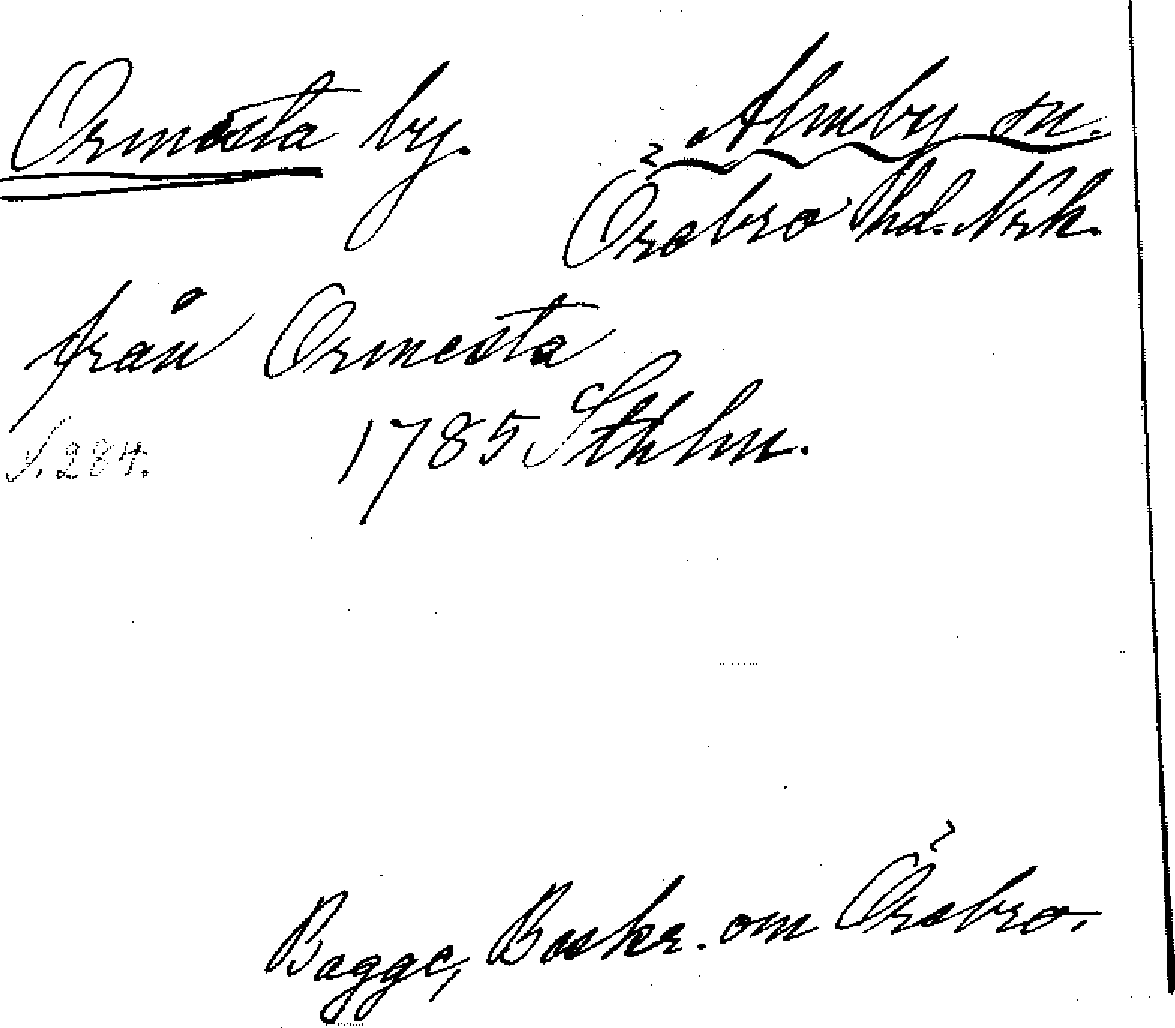 Ormesta by. Almby sn.
Örebro hd. Nrk.
från Ormesta
S. 284. 1785 Sthlm.
Bagge, Beskr. om Örebro.